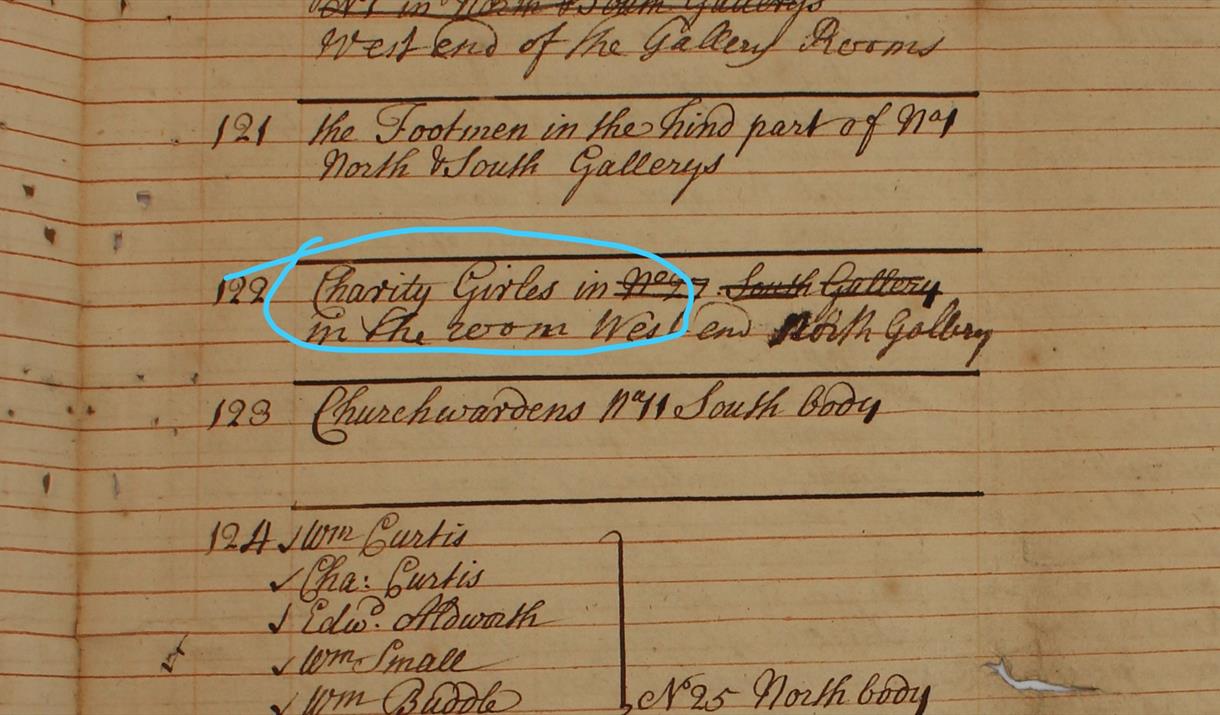 No 1 in North & South Gallerys
West end of the Gallery Rooms
121 the Footmen in the hind part of No 1
North & South Gallerys
122 Charity Girles in No 27 South Gallery
in the room West end North Gallery
123 Churchwardens No 11 South body
124 Wm Curtis
Cha: Curtis
Edwd. Aldworth
Wm Small
Wm Buddle No 25 North body